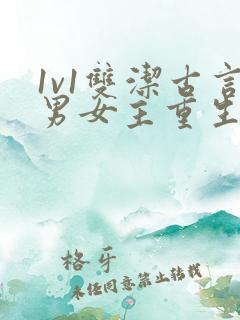 1v1雙潔古言
男女主重生
格子
未经同意禁止转载